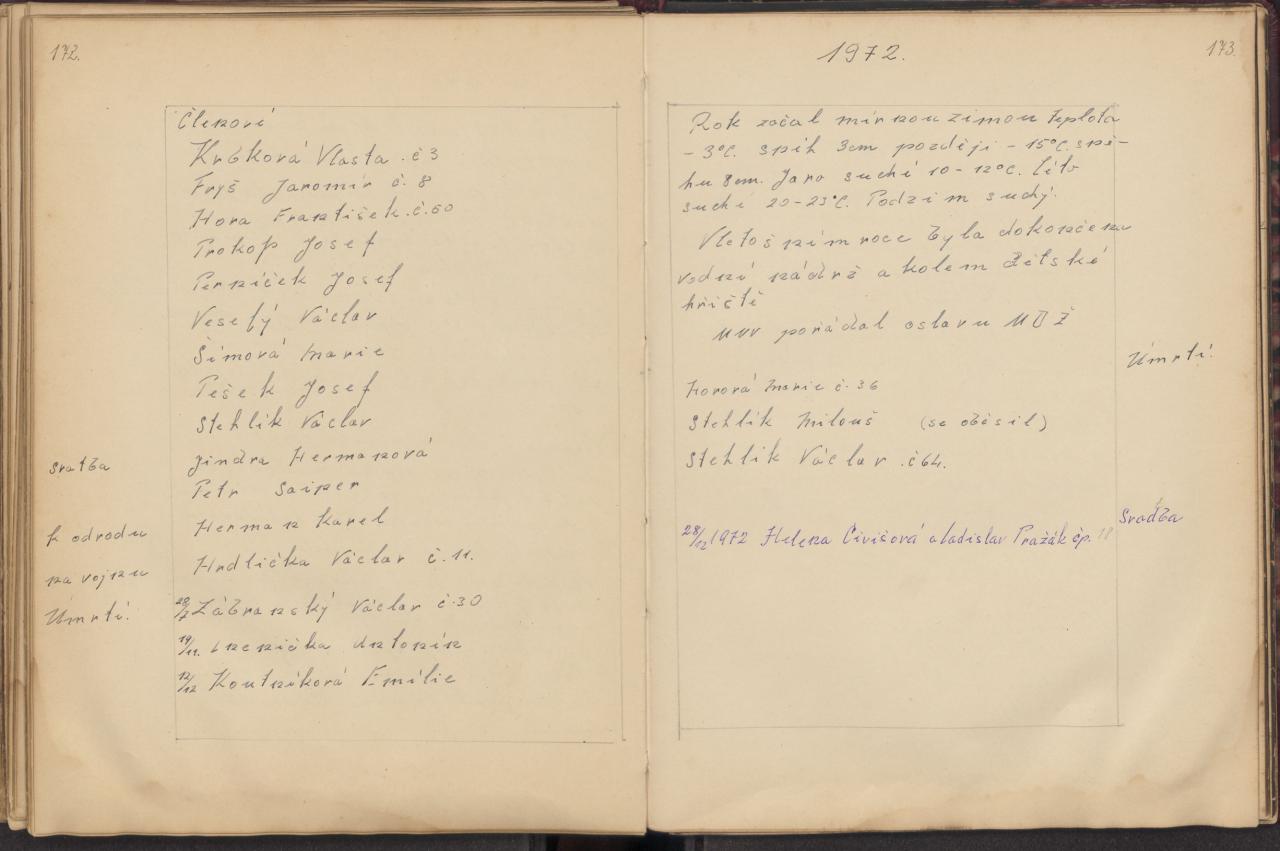 172.
Členové
Krbková Vlasta č 3
Fryš Jaromír č. 8
Hora František č. 60
Prokop Josef
Perníček Josef
Veselý Václav
Šímová Marie
Pešek Josef
Stehlík Václav
svatba Jindra Hermanová
Petr Saiper
Herman Karel
k odvodu
na vojnu Hrdlička Václav č. 11.
Úmrtí: 28/7 Zábranský Václav č. 30
19/11. Antonín
12/12 Koutníková Emílie
1972. 173.
Rok začal mírnou zimou teplota
- 3°C. sníh 3cm později - 15°C. sně-
hu 8cm. Jaro suché 10-12°C. léto
suché 20-23°C. Podzim suchý.
Vletošním roce byla dokončena
vodní nádrž a kolem dětské
hřiště
MNV pořádal oslavu MDŽ
Úmrtí:
Horová Marie č. 36
Stehlík Milouš (se oběsil)
Stehlík Václav č 64.
Svadba
28/12 1972 Helena Civišová a Ladislav Pražák čp. 18